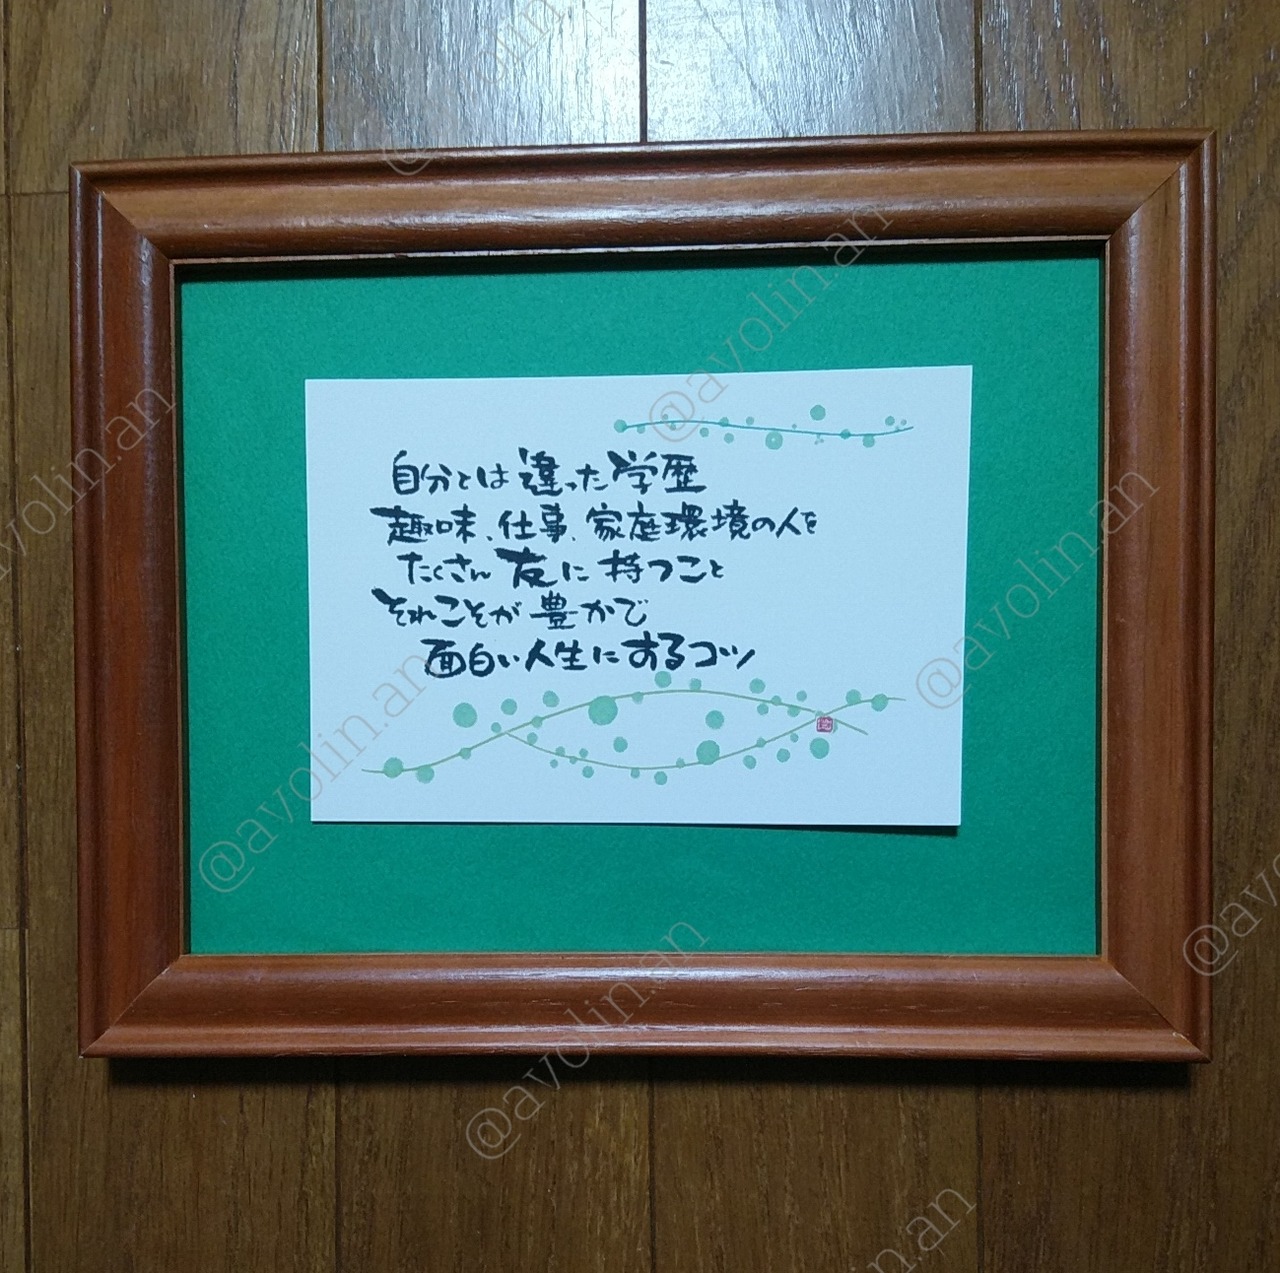 自分とは違った学歴
趣味、仕事、家庭環境の人を
たくさん友に持つこと
それこそが豊かで
面白い人生にするコツ
@avolin.an
@avolin.an
@avolin.an
@avolin.an
@avolin.an
@avolin.an
@avolin.an